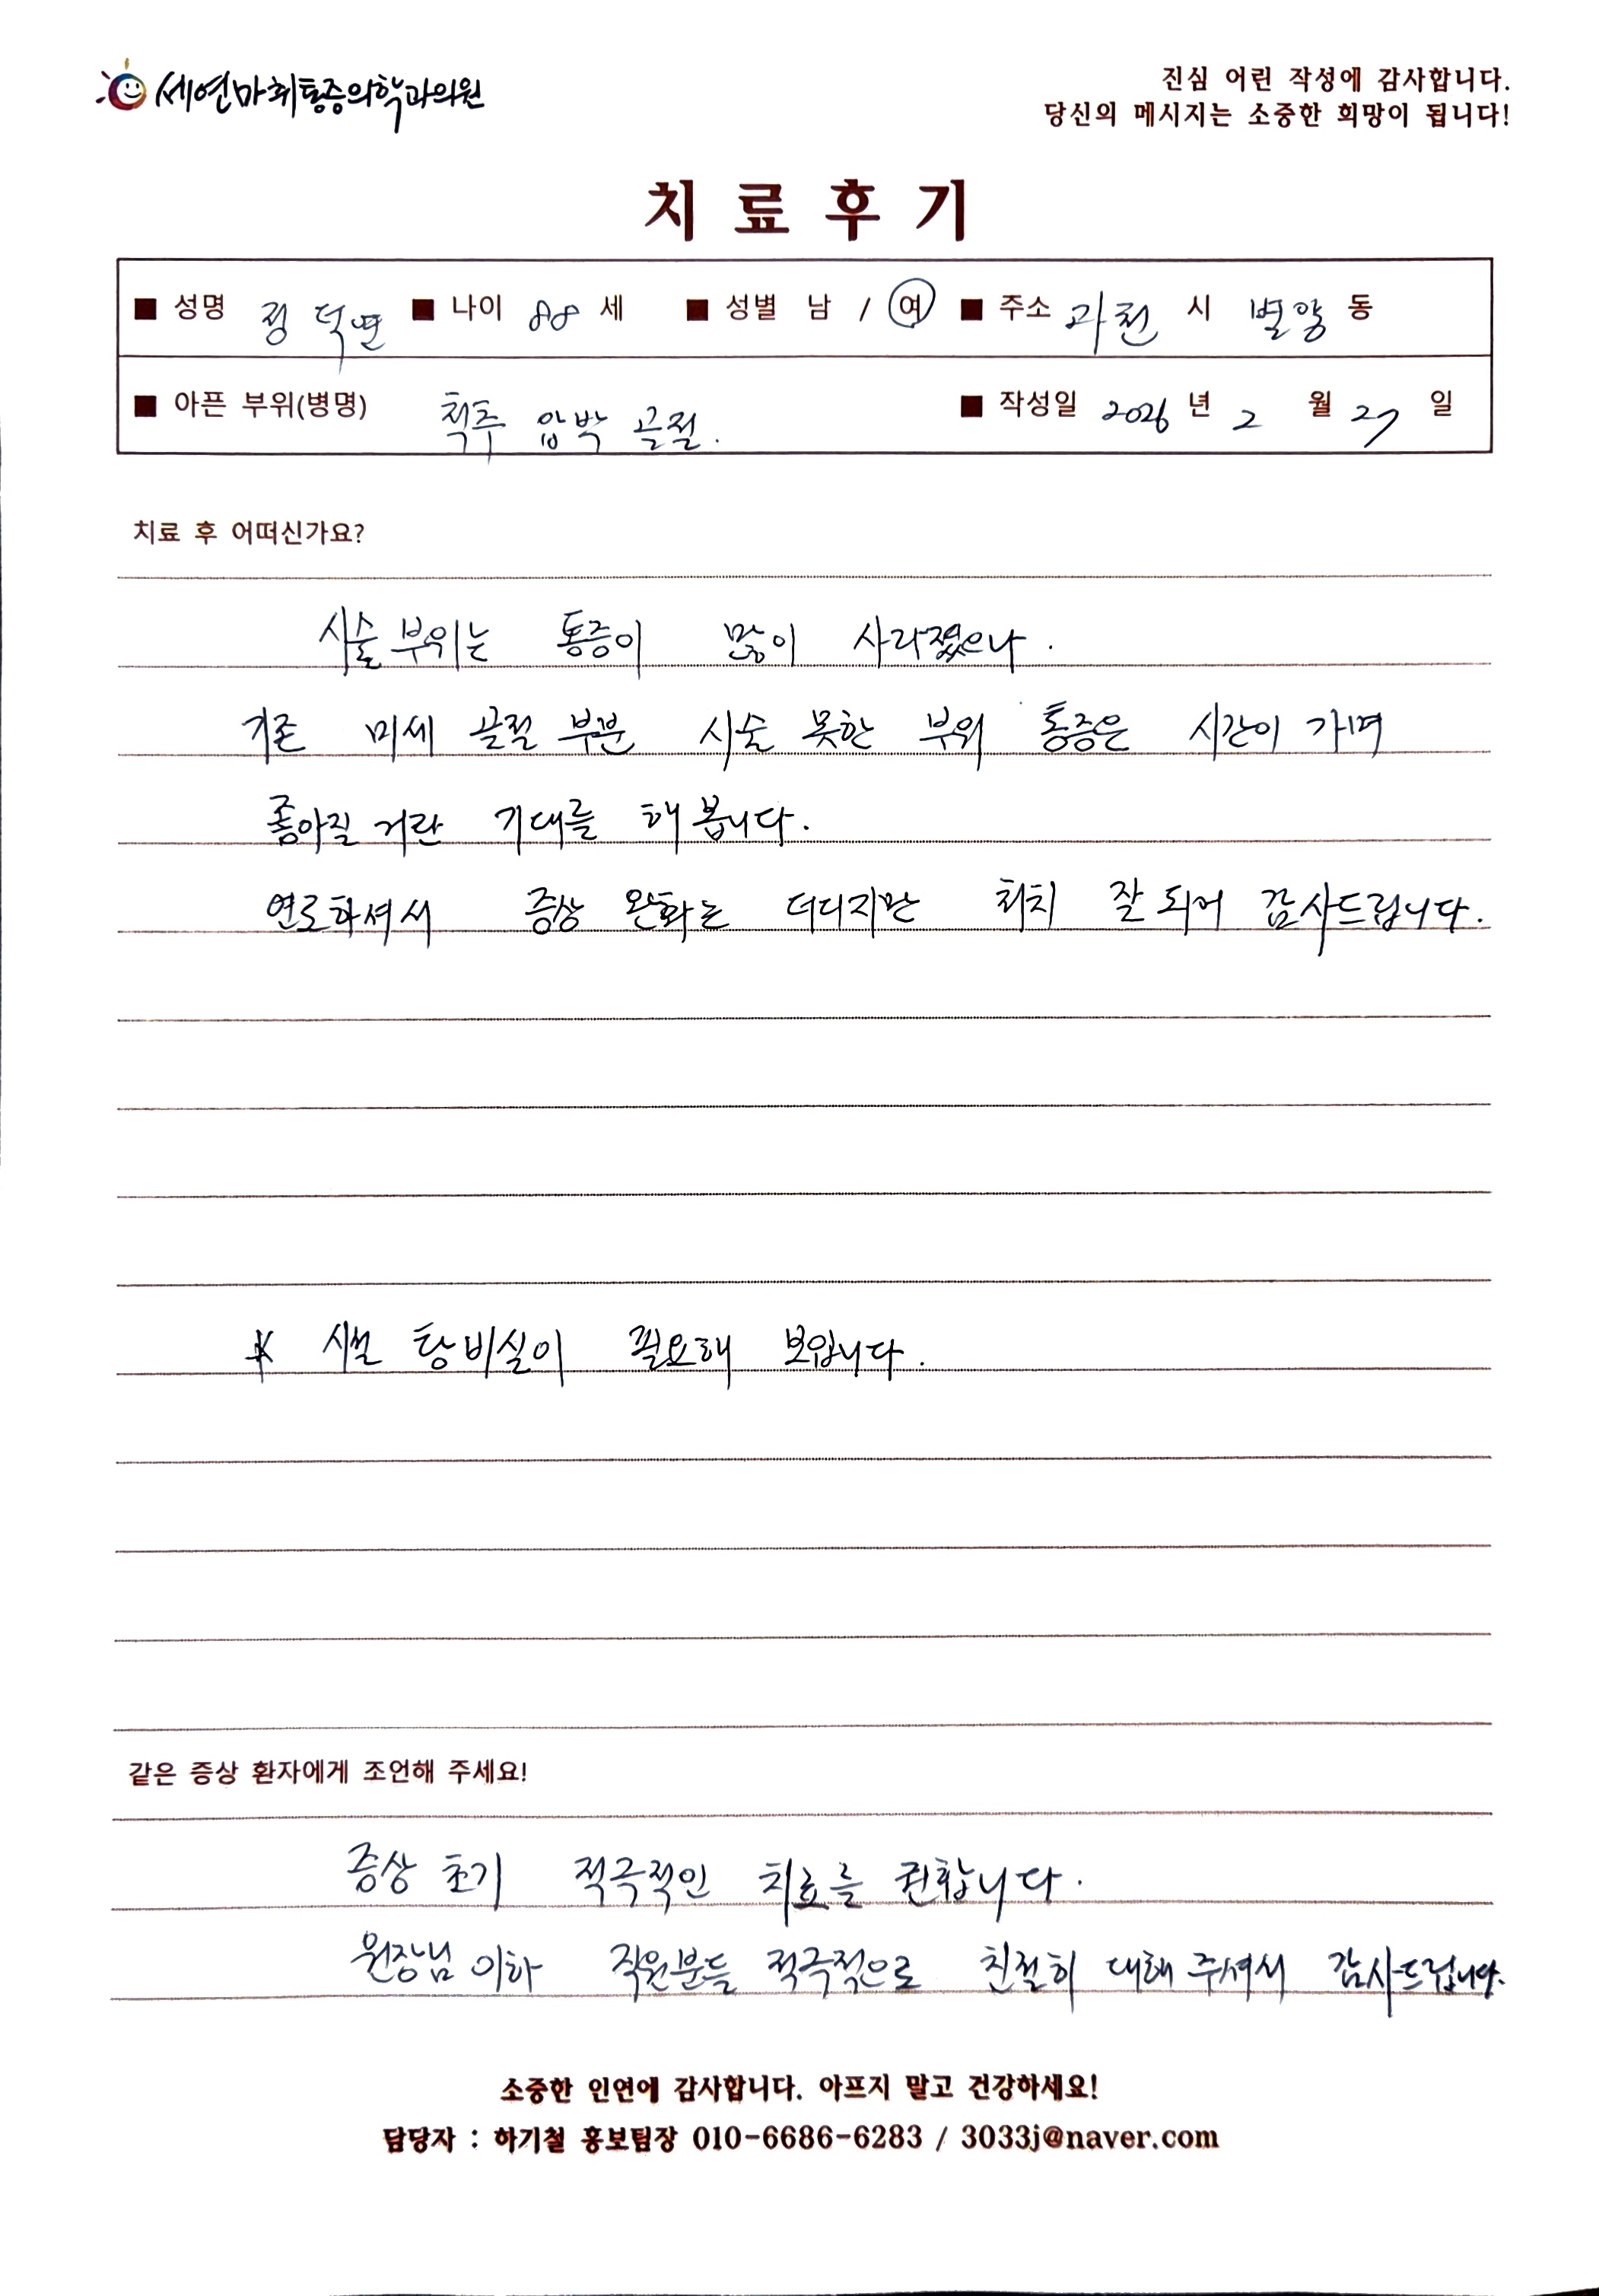 세연마취통증의학과의원
진심 어린 작성에 감사합니다.
당신의 메시지는 소중한 희망이 됩니다!
치료후기
■ 성명 정덕연 ■ 나이 88 세 ■ 성별 남 / 여 ■ 주소 과천 시 별양 동
■ 아픈 부위(병명) 척추 압박 골절. ■ 작성일 2026 년 2 월 27 일
치료 후 어떠신가요?
시술 부위는 통증이 많이 사라졌으나.
기존 미세 골절 부분 시술 못한 부위 통증은 시간이 가며
좋아질 거란 기대를 해 봅니다.
연로하셔서 증상 완화는 더디지만 처치 잘 되어 감사드립니다.
* 시설 탕비실이 필요해 보입니다.
같은 증상 환자에게 조언해 주세요!
증상 초기 적극적인 치료를 권합니다.
원장님 이하 직원분들 적극적으로 친절히 대해 주셔서 감사드립니다.
소중한 인연에 감사합니다. 아프지 말고 건강하세요!
담당자 : 하기철 홍보팀장 010-6686-6283 / 3033j@naver.com